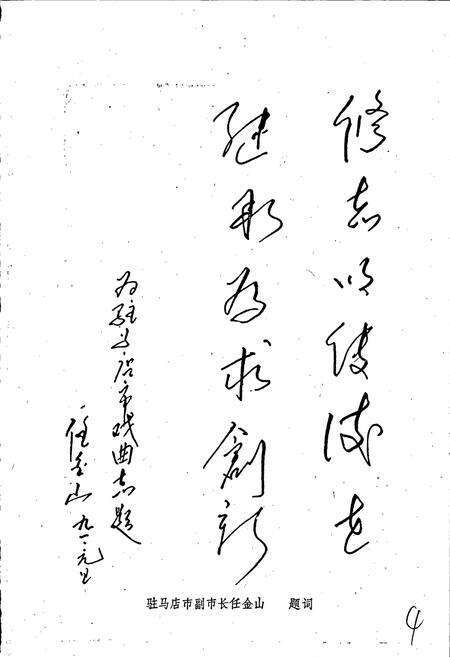 修志以传後世
继承为求創新
为驻马店市戏曲志题
任金山 九一.元
驻马店市副市长任金山 题词
4